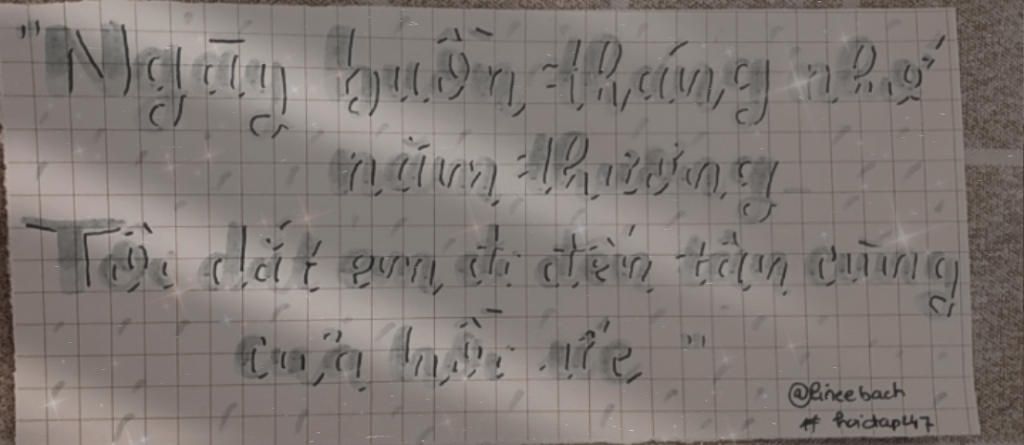 "Ngày buồn, tháng nhớ
năm thương
Tôi dắt em đi đến tận cùng
của hồi ức"
@lineebach